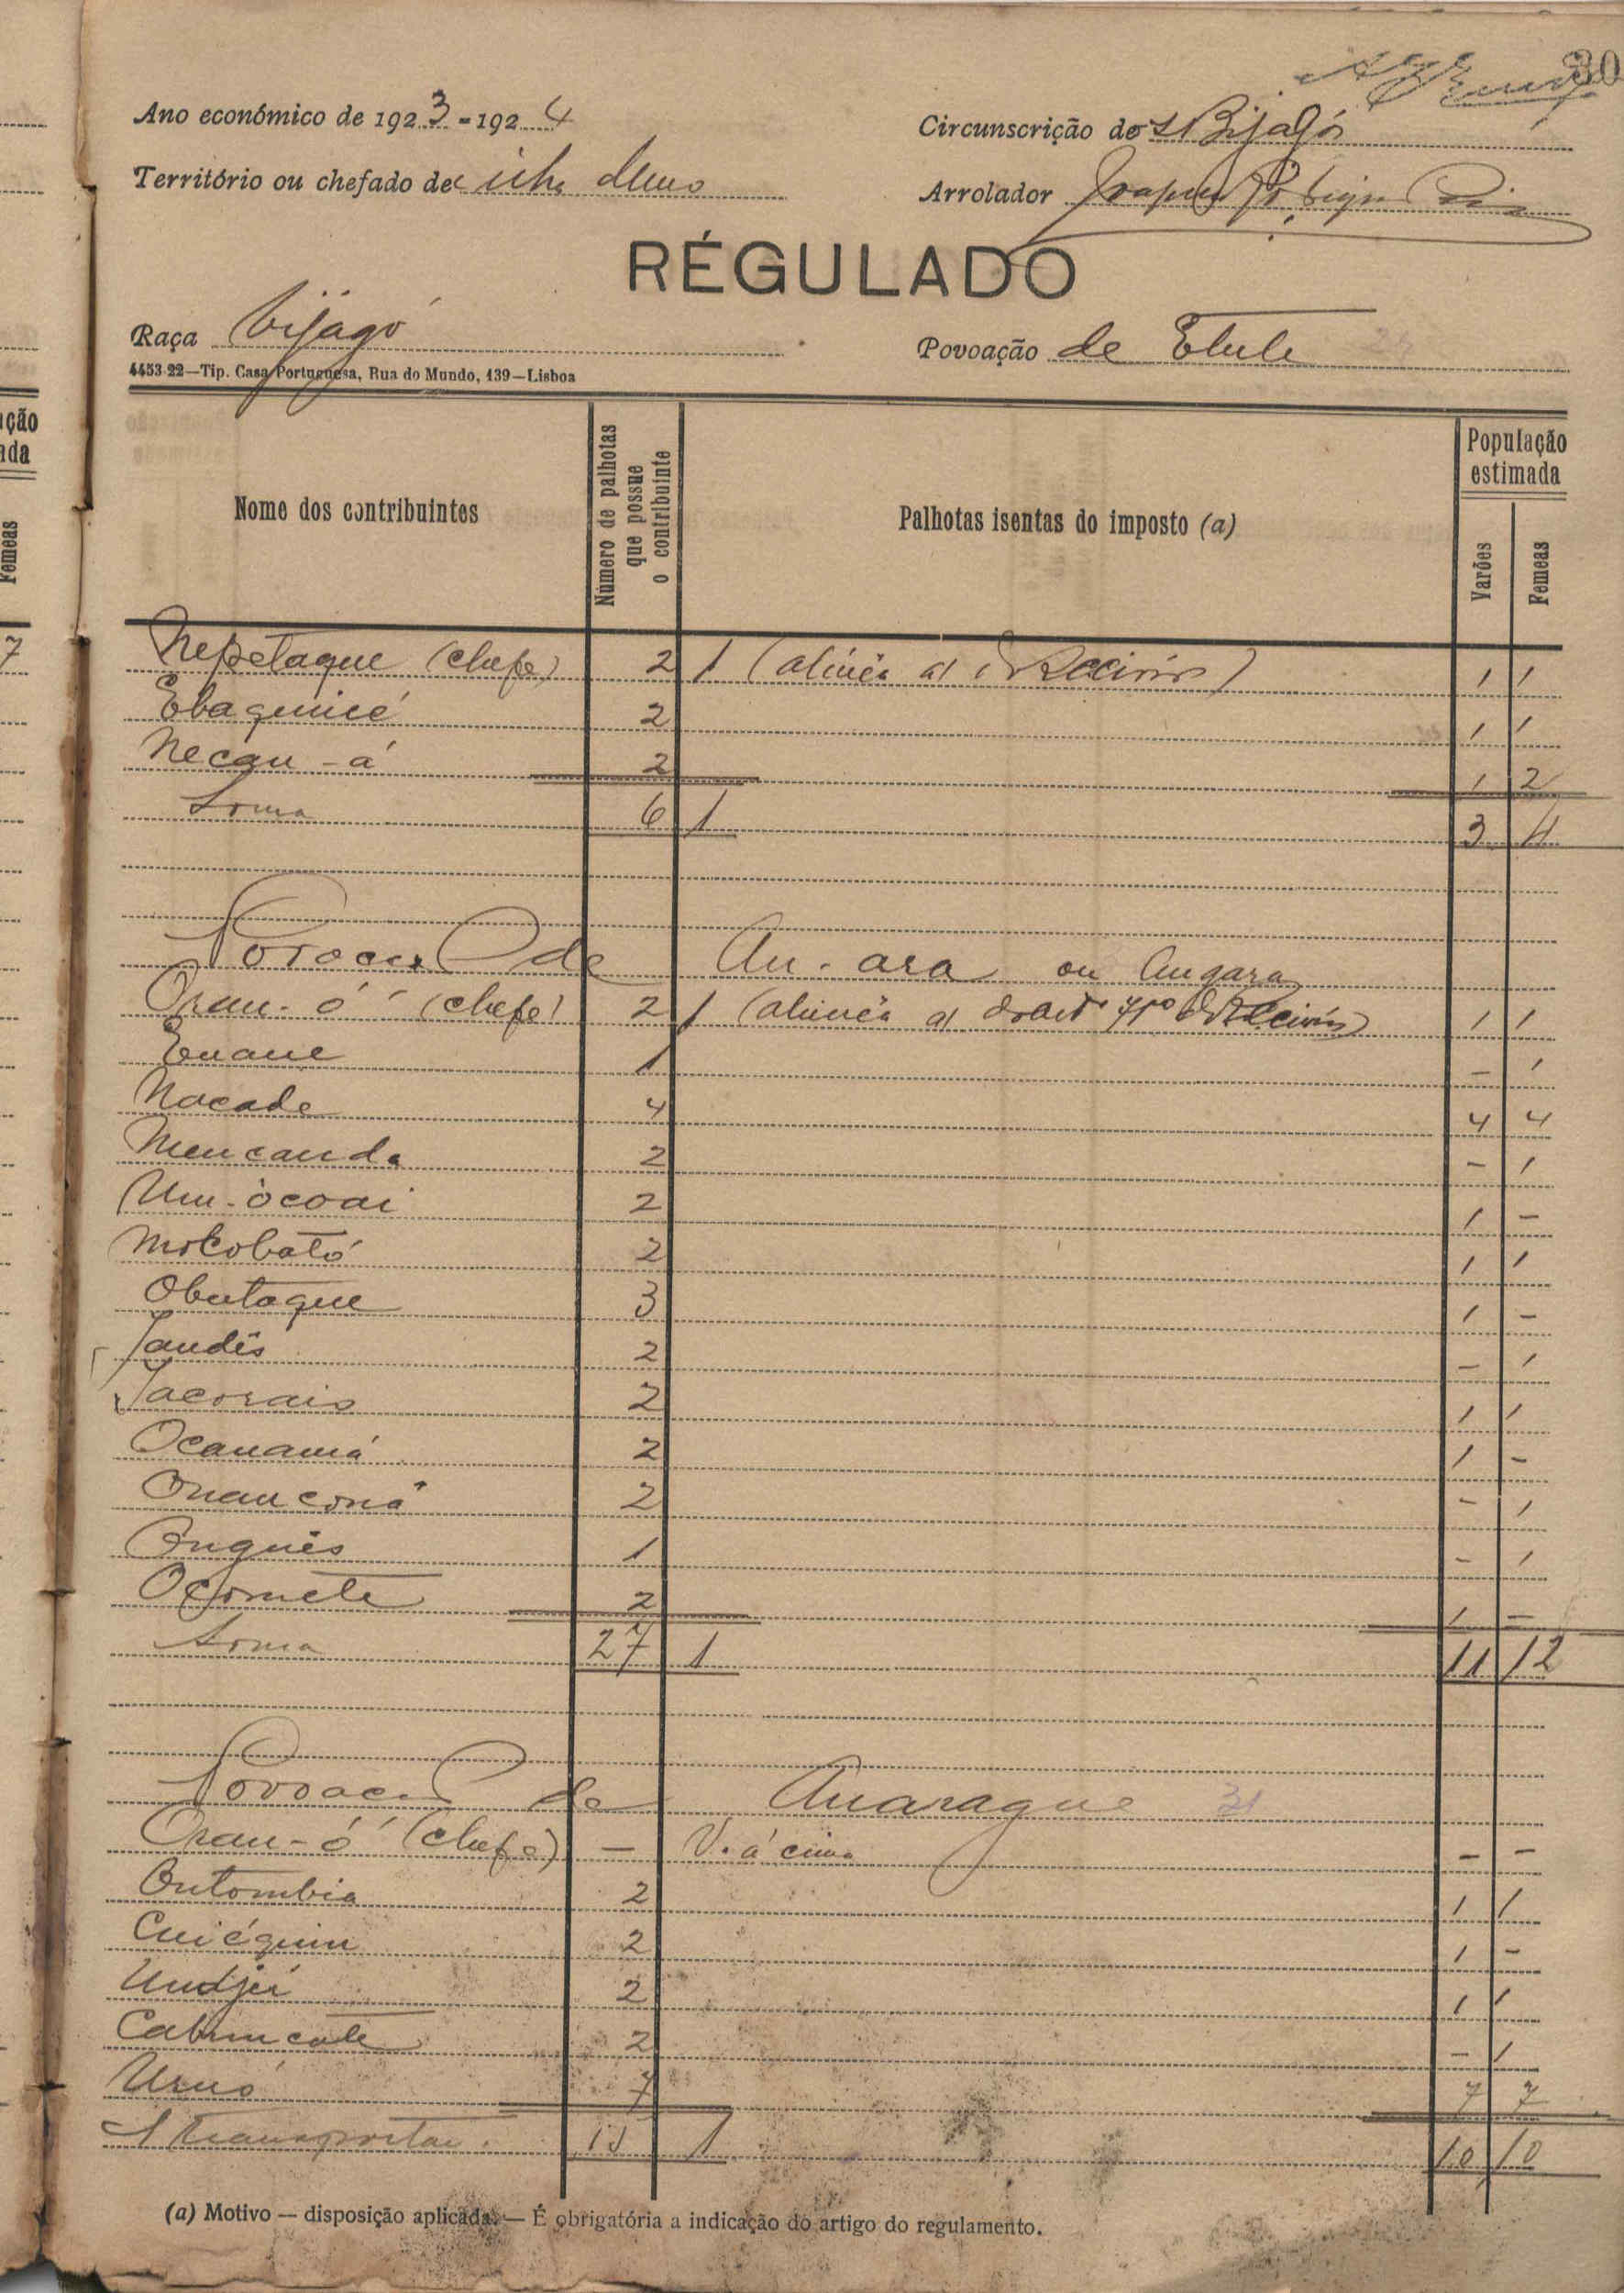 30
Ano económico de 1923-1924
Circunscrição dos Bijagós
Território ou chefado de ilha
Arrolador
RÉGULADO
Raça bijagó
Povoação de Etute
4453-22—Tip. Casa Portuguesa, Rua do Mundo, 139—Lisboa
ção
ada
Femeas
7
Nome dos contribuintes
Número de palhotas que possue o contribuinte
Palhotas isentas do imposto (a)
População estimada
Varões
Femeas
Nepetaque (chefe) 2 1 (alinea a) 1 1
Ebaquinié 2 1 1
Necau-á 2 1 2
Soma 6 1 3 4
Povoação de An-ara ou Angara
Oran-ó (chefe) 2 1 (alinea a) do artº 1 1
Enane 1 - 1
Nocade 4 4 4
Mencanda 2 - 1
Um-òcoai 2 1 -
Motobató 2 1 1
Obutaque 3 1 -
Jandís 2 - 1
Jacorais 2 1 1
Ocanamá 2 1 -
Onanconá 2 - 1
Onguês 1 - 1
Ocomete 2 1 -
Soma 27 1 11 12
Povoação de Anarague 31
Oran-ó (chefe) - V. á cima - -
Ontombia 2 1 1
Cuiéquim 2 1 -
Undjei 2 1 1
Cabuncate 2 - 1
Urus 7 7 7
A transportar 1 10 10
(a) Motivo — disposição aplicada. — É obrigatória a indicação do artigo do regulamento.